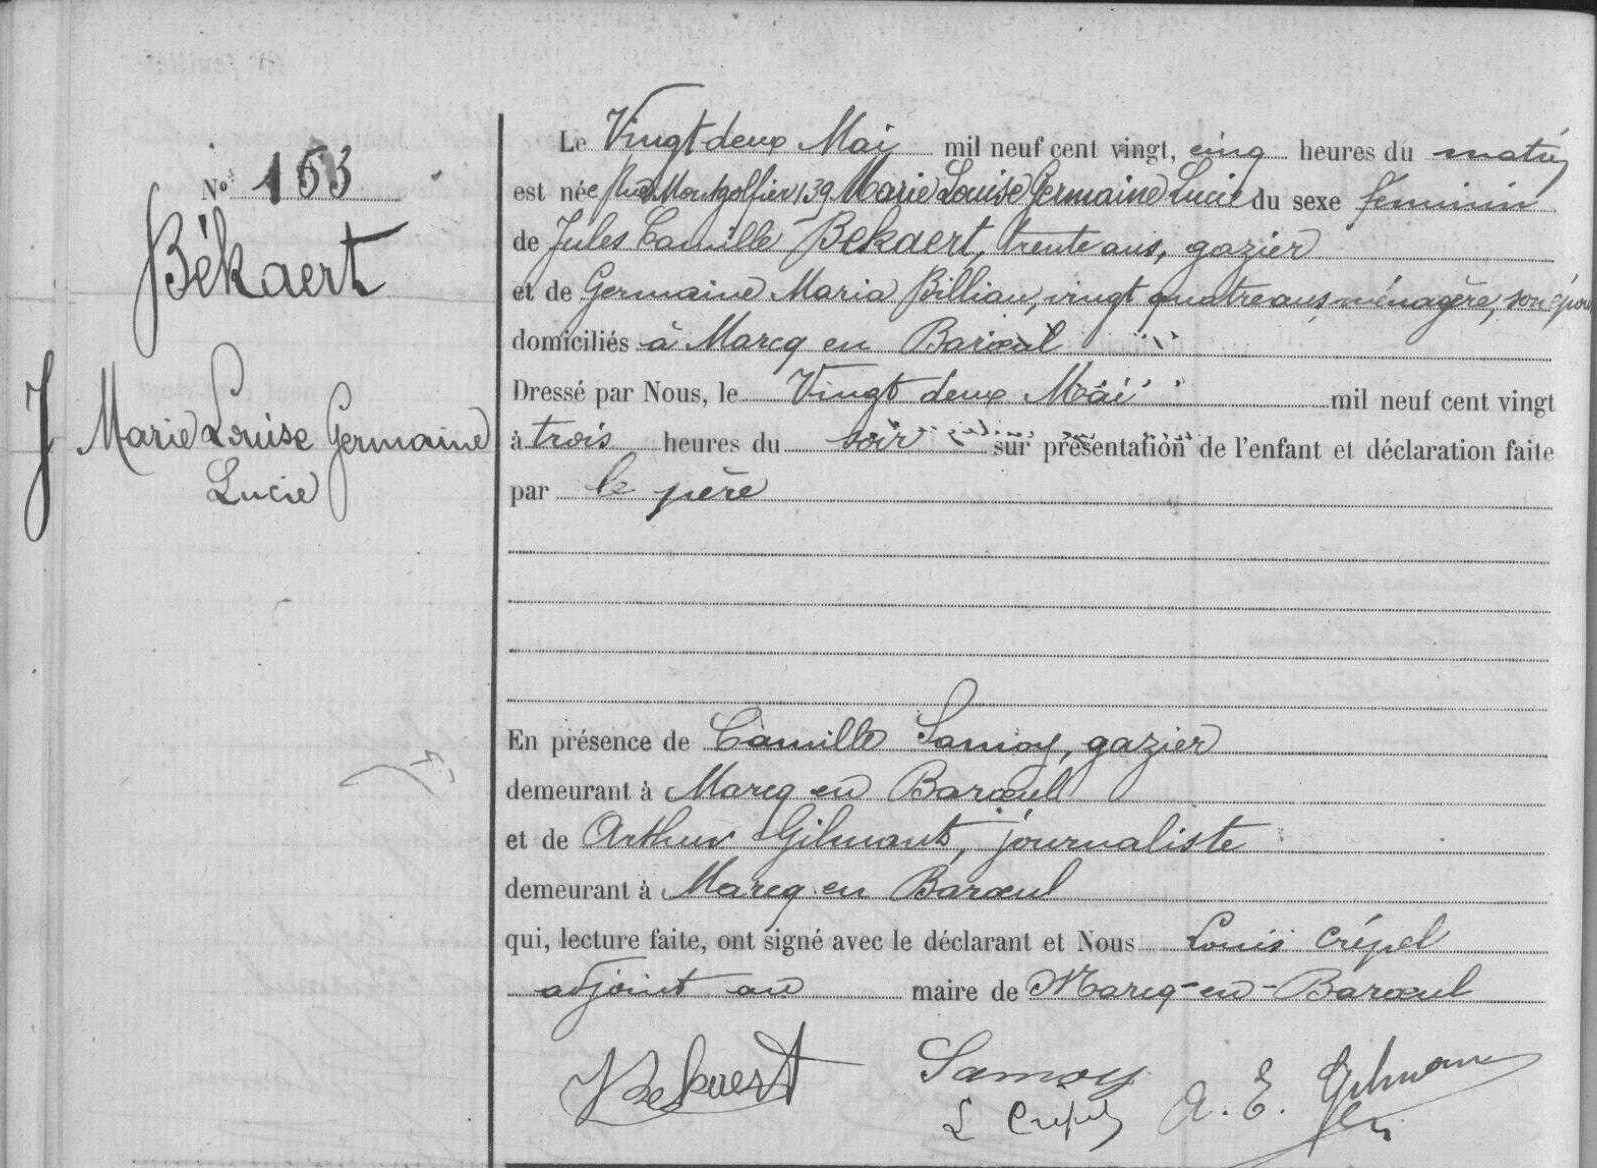 N° 153
Békaert
J Marie Louise Germaine
Lucie
Le Vingt deux Mai mil neuf cent vingt, cinq heures du matin
est née Rue Montgolfier 139 Marie Louise Germaine Lucie du sexe féminin
de Jules Camille Békaert, trente ans, gazier
et de Germaine Maria Billiau, vingt quatre ans, ménagère, son épouse
domiciliés à Marcq en Barœul
Dressé par Nous, le Vingt deux Mai mil neuf cent vingt
à trois heures du soir sur présentation de l'enfant et déclaration faite
par le père
En présence de Camille Samoy, gazier
demeurant à Marcq en Barœul
et de Arthur Gilmant, journaliste
demeurant à Marcq en Barœul
qui, lecture faite, ont signé avec le déclarant et Nous Louis Crépel
adjoint au maire de Marcq-en-Barœul
Bekaert Samoy A. E. Gilmant
L Crépel fils